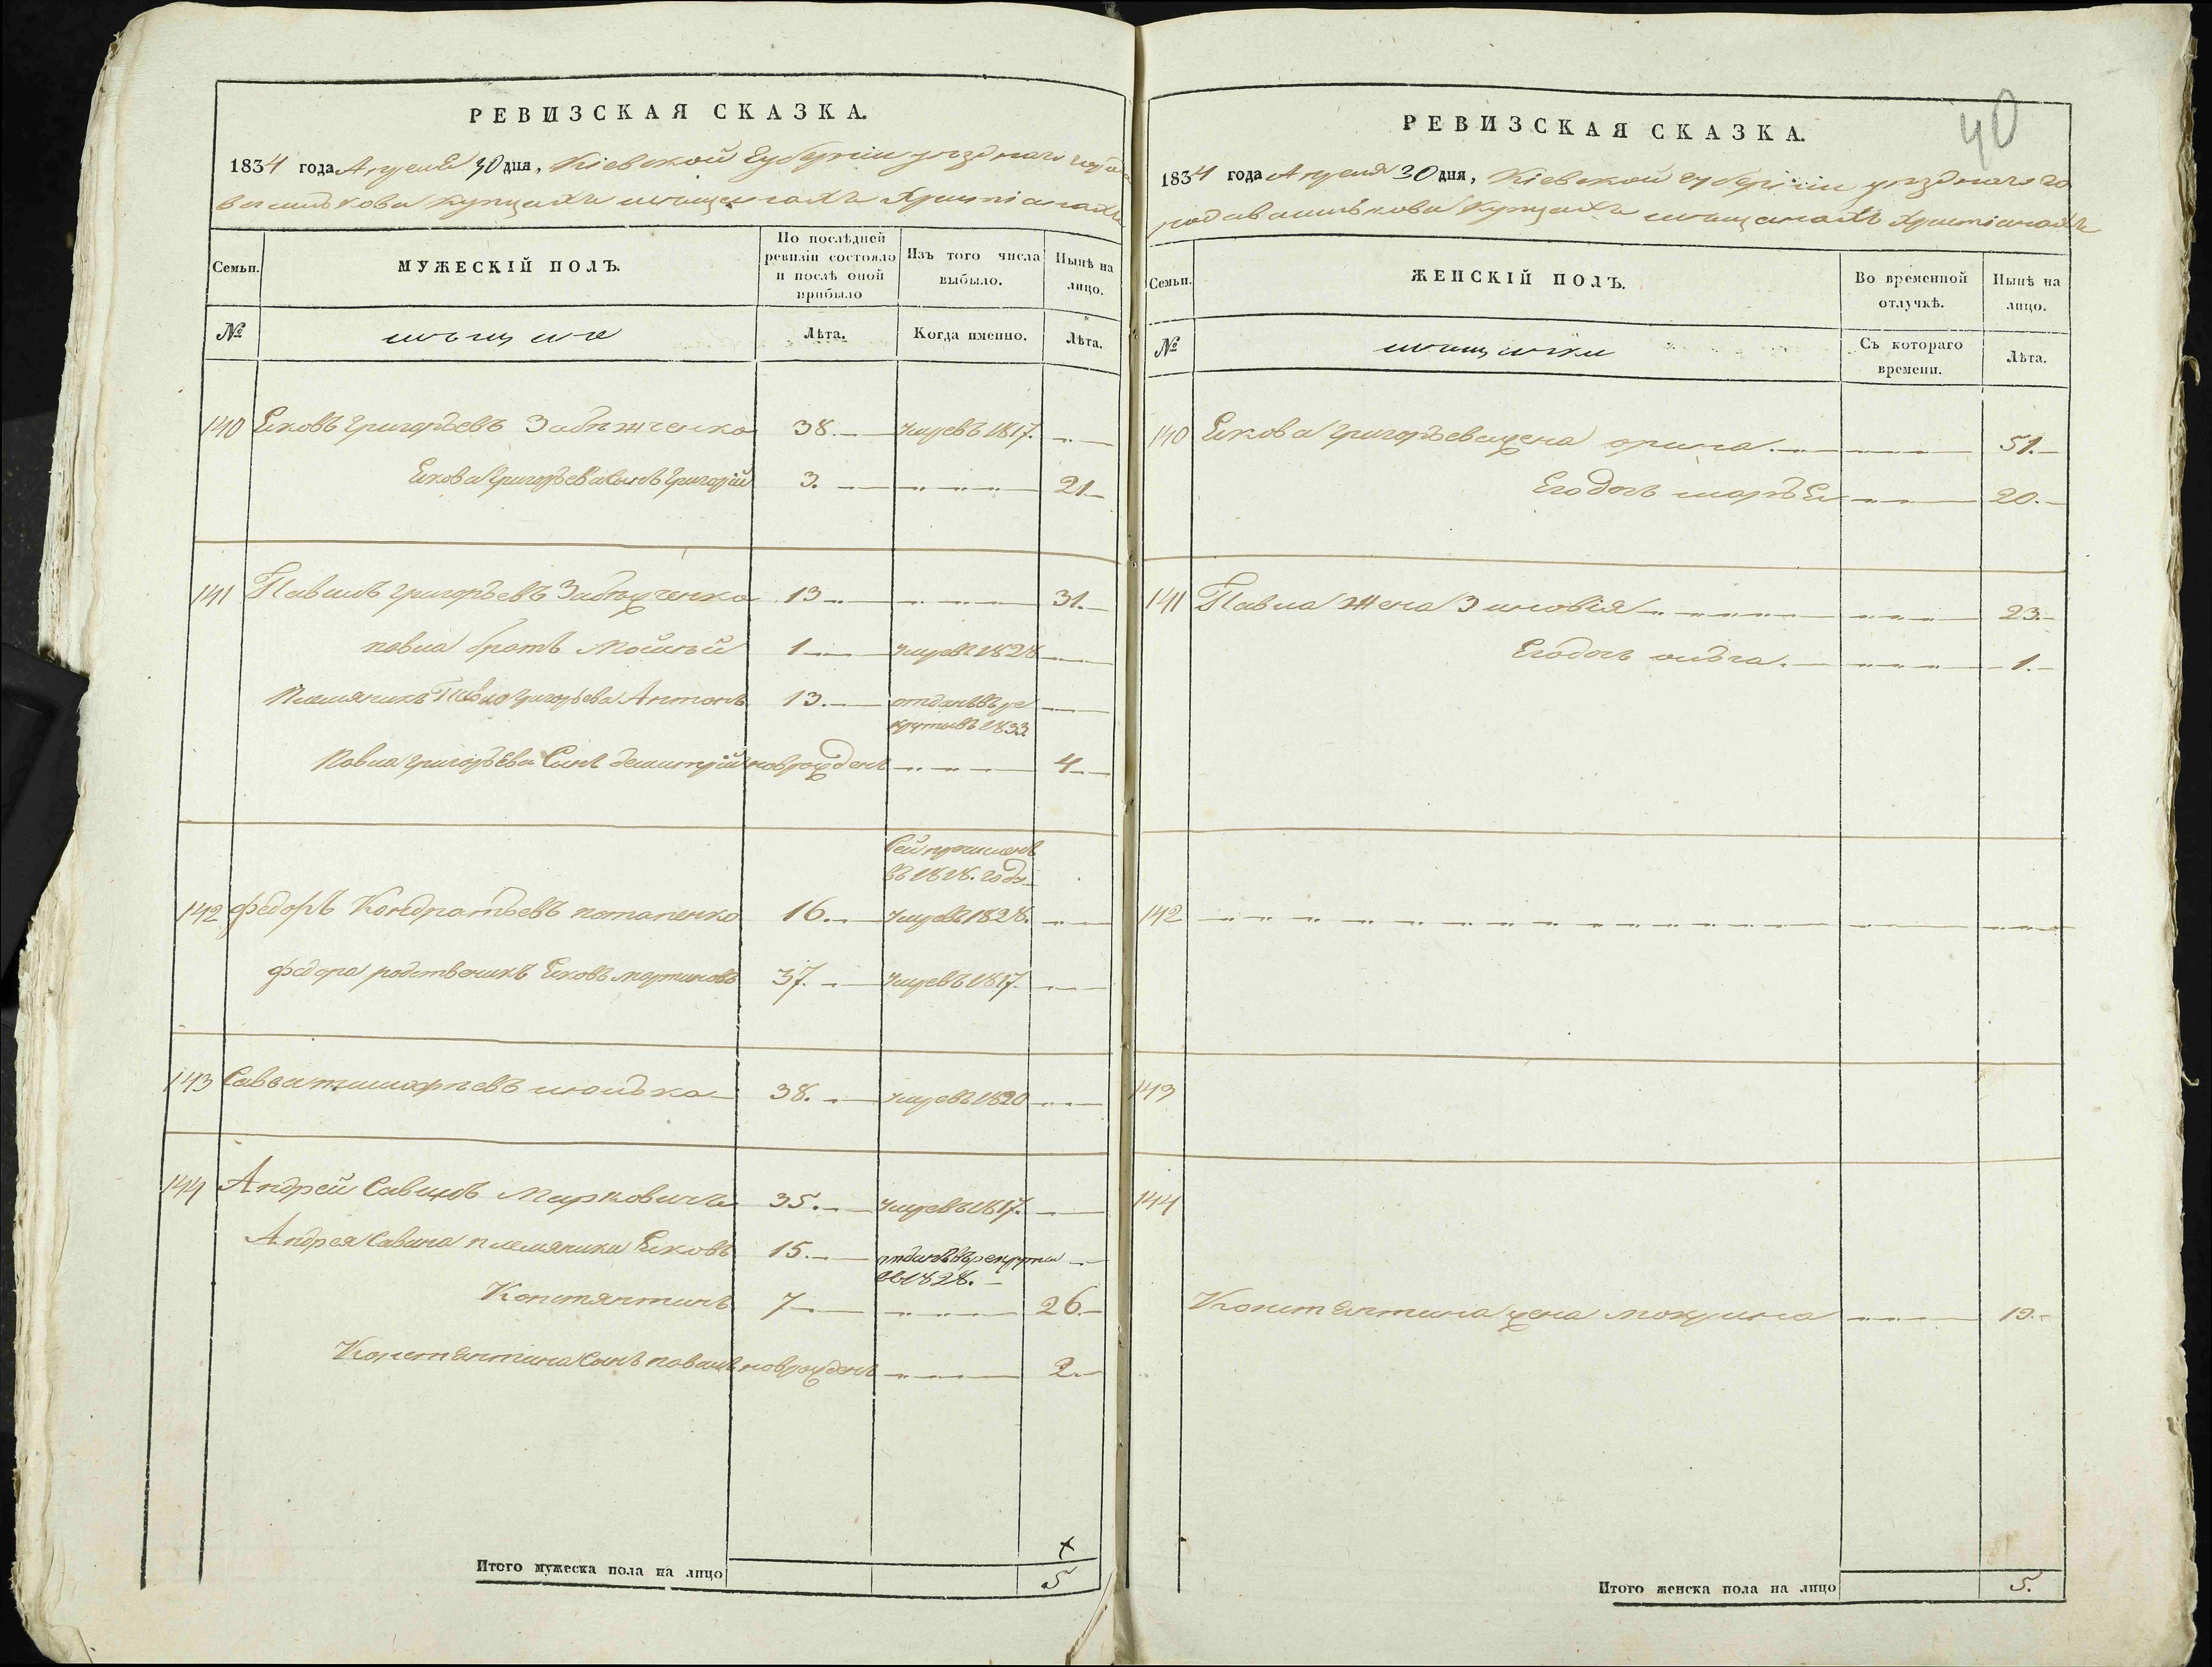 РЕВИЗСКАЯ СКАЗКА.
1834 года Апреля 30 дня, Кіевской губерніи уезднаго города
василькова купцахъ мещенахъ Христіанахъ
Семьи.
МУЖЕСКІЙ ПОЛЪ.
По послѣдней ревизіи состояло и послѣ оной прибыло
Изъ того числа выбыло.
Нынѣ на лицо.
№
мещане
Лѣта.
Когда именно.
Лѣта.
140 Яковъ Григорьевъ 38. умревъ 1817.
Якова Григорьева сынъ Григорій 3. 21
141 Павелъ Григорьевъ 13 31.
павла братъ Мойсей 1 умревъ 1828
Племяникъ Павла Григорьева Антонъ 13. отданъ въ рекруты въ 1833
Павла Григорьева Сынъ димитрій новрожденъ 4
Сей причисленъ
въ 1818. году
142 федоръ Кондратьевъ потапенко 16. умревъ 1828.
федора родственикъ Яковъ мартиновъ 37. умревъ 1817.
143 Савва тимофеевъ 38. умревъ 1820
144 Андрей Савинъ Марковичъ 35. умревъ 1817.
Андрея Савина племяники Яковъ 15. отданъ въ рекруты
въ 1828.
Констянтинъ 7 26.
Констянтина Сынъ павелъ новрожденъ 2.
Итого мужеска пола на лицо
5
РЕВИЗСКАЯ СКАЗКА.
40
1834 года Апреля 30 дня, Кіевской губерніи уезднаго го
рода василькова купцахъ мещанахъ Христіанахъ
Семьи.
ЖЕНСКІЙ ПОЛЪ.
Во временной отлучкѣ.
Нынѣ на лицо.
№
мещанки
Съ котораго времени.
Лѣта.
140 Якова Григорьева жена орина. 51.
Его дочь марья 20.
141 Павла Жена Зиновія 23.
Его дочь олга. 1.
142
143
144
Констянтина жена мокрина 19.
Итого женска пола на лицо
5.